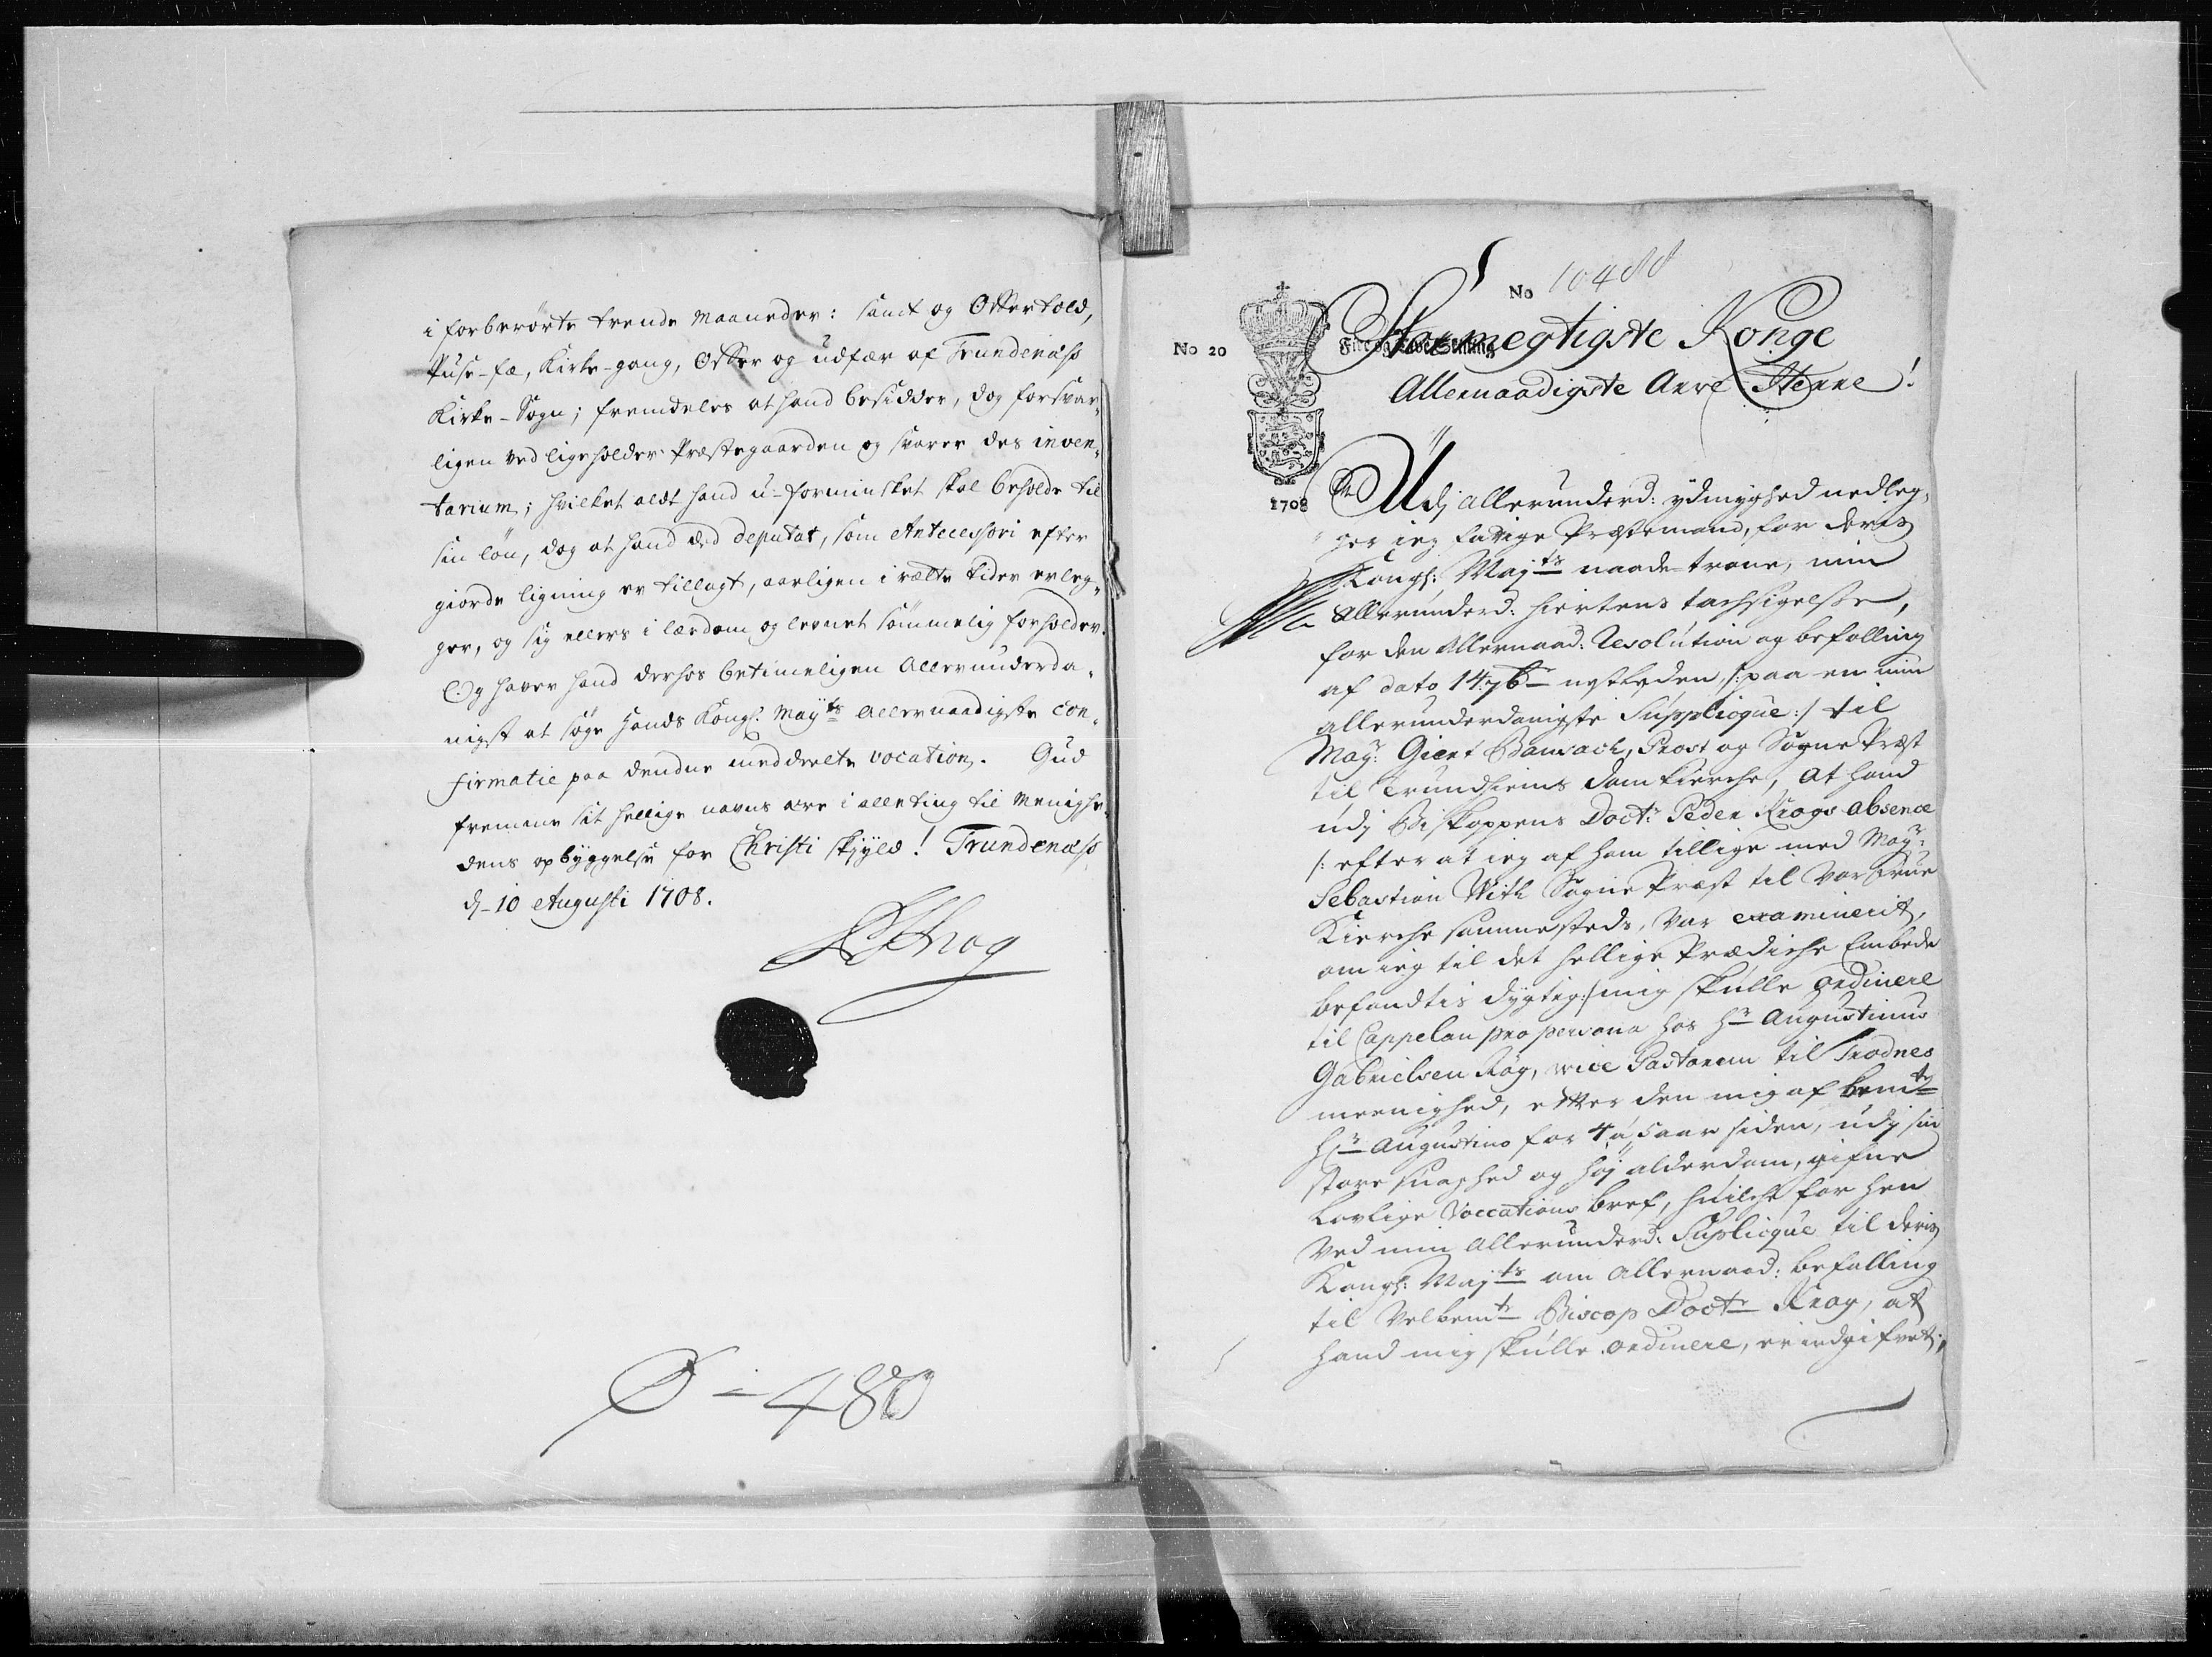 i forberørte trende maaneder: samt og Offer told,
Puse-fæ, Kirke-gang, Offer og udfær af Trundenæss
Kirke-Sogn; fremdeles at hand besidder, dog forsvar¬
ligen ved ligeholder Præstegaarden og svarer des inven¬
tarium; hvilket aldt hand u-forminsket skal beholde til
sin løn, dog at hand ded deputat, som Antecessori efter
giorde ligning er tillagt, aarligen i rætte tider erleg¬
ger, og sig ellers i lærdom og levnet sømmelig forholder.
Og haver hand derhos betimeligen Allerunderda¬
nigst at søge Hands Kongl: Mayts Allernaadigste con¬
firmatie paa denne meddeelte vocation. Gud
fremme sit hellige navns ære i alle ting til Menighe¬
dens opbyggelse for Christi skyld! Trundenæss
d. 10 Augusti 1708.
PKrog
480
No 10488
No 20
1708
Stormegtigste Konge
Allernaadigste Arve Herre!
Udj allerunderd: ydmyghed nedleg¬
ger ieg fattige Præstemand, for deris
Kongl: Majts naade-trone, min
Allerunderd: hiertens tachsigelsse,
for den Allernaad: Resolution og befalling
af dato 14 7br nestleden, /: paa en min
allerunderdanigste Supplicque :/ til
May: Giert Bansach, Prost og Sogne Præst
til Trundhiems Domkierche, At hand
udj Biskoppens Doct: Peder Krogs absence
/: efter at ieg af ham tillige med Mayr:
Sebastian With Sogne Præst til Vor Frue
Kierche sammesteds, var examinerit,
om ieg til det hellige Prædiche Embede
befandtis dygtig :/ mig skulle ordinere
til Cappelan pro persona hos Hr Augustinus
Gabrielsen Røg, vice Pastorem til Trodnes
meenighed, efter den mig af bemte
Hr Augustino for 4 á 5 aar siden, udj sin
store suaghed og høj alderdom, gifne
lovlige Voccations bref, huilche for hen
ved min Allerunderd: Suplicque til deris
Kongl: Majts om Allernaad: befalling
til Velbemte Biscop Doctr Krog, at
hand mig skulle ordinere, er indgifvet;